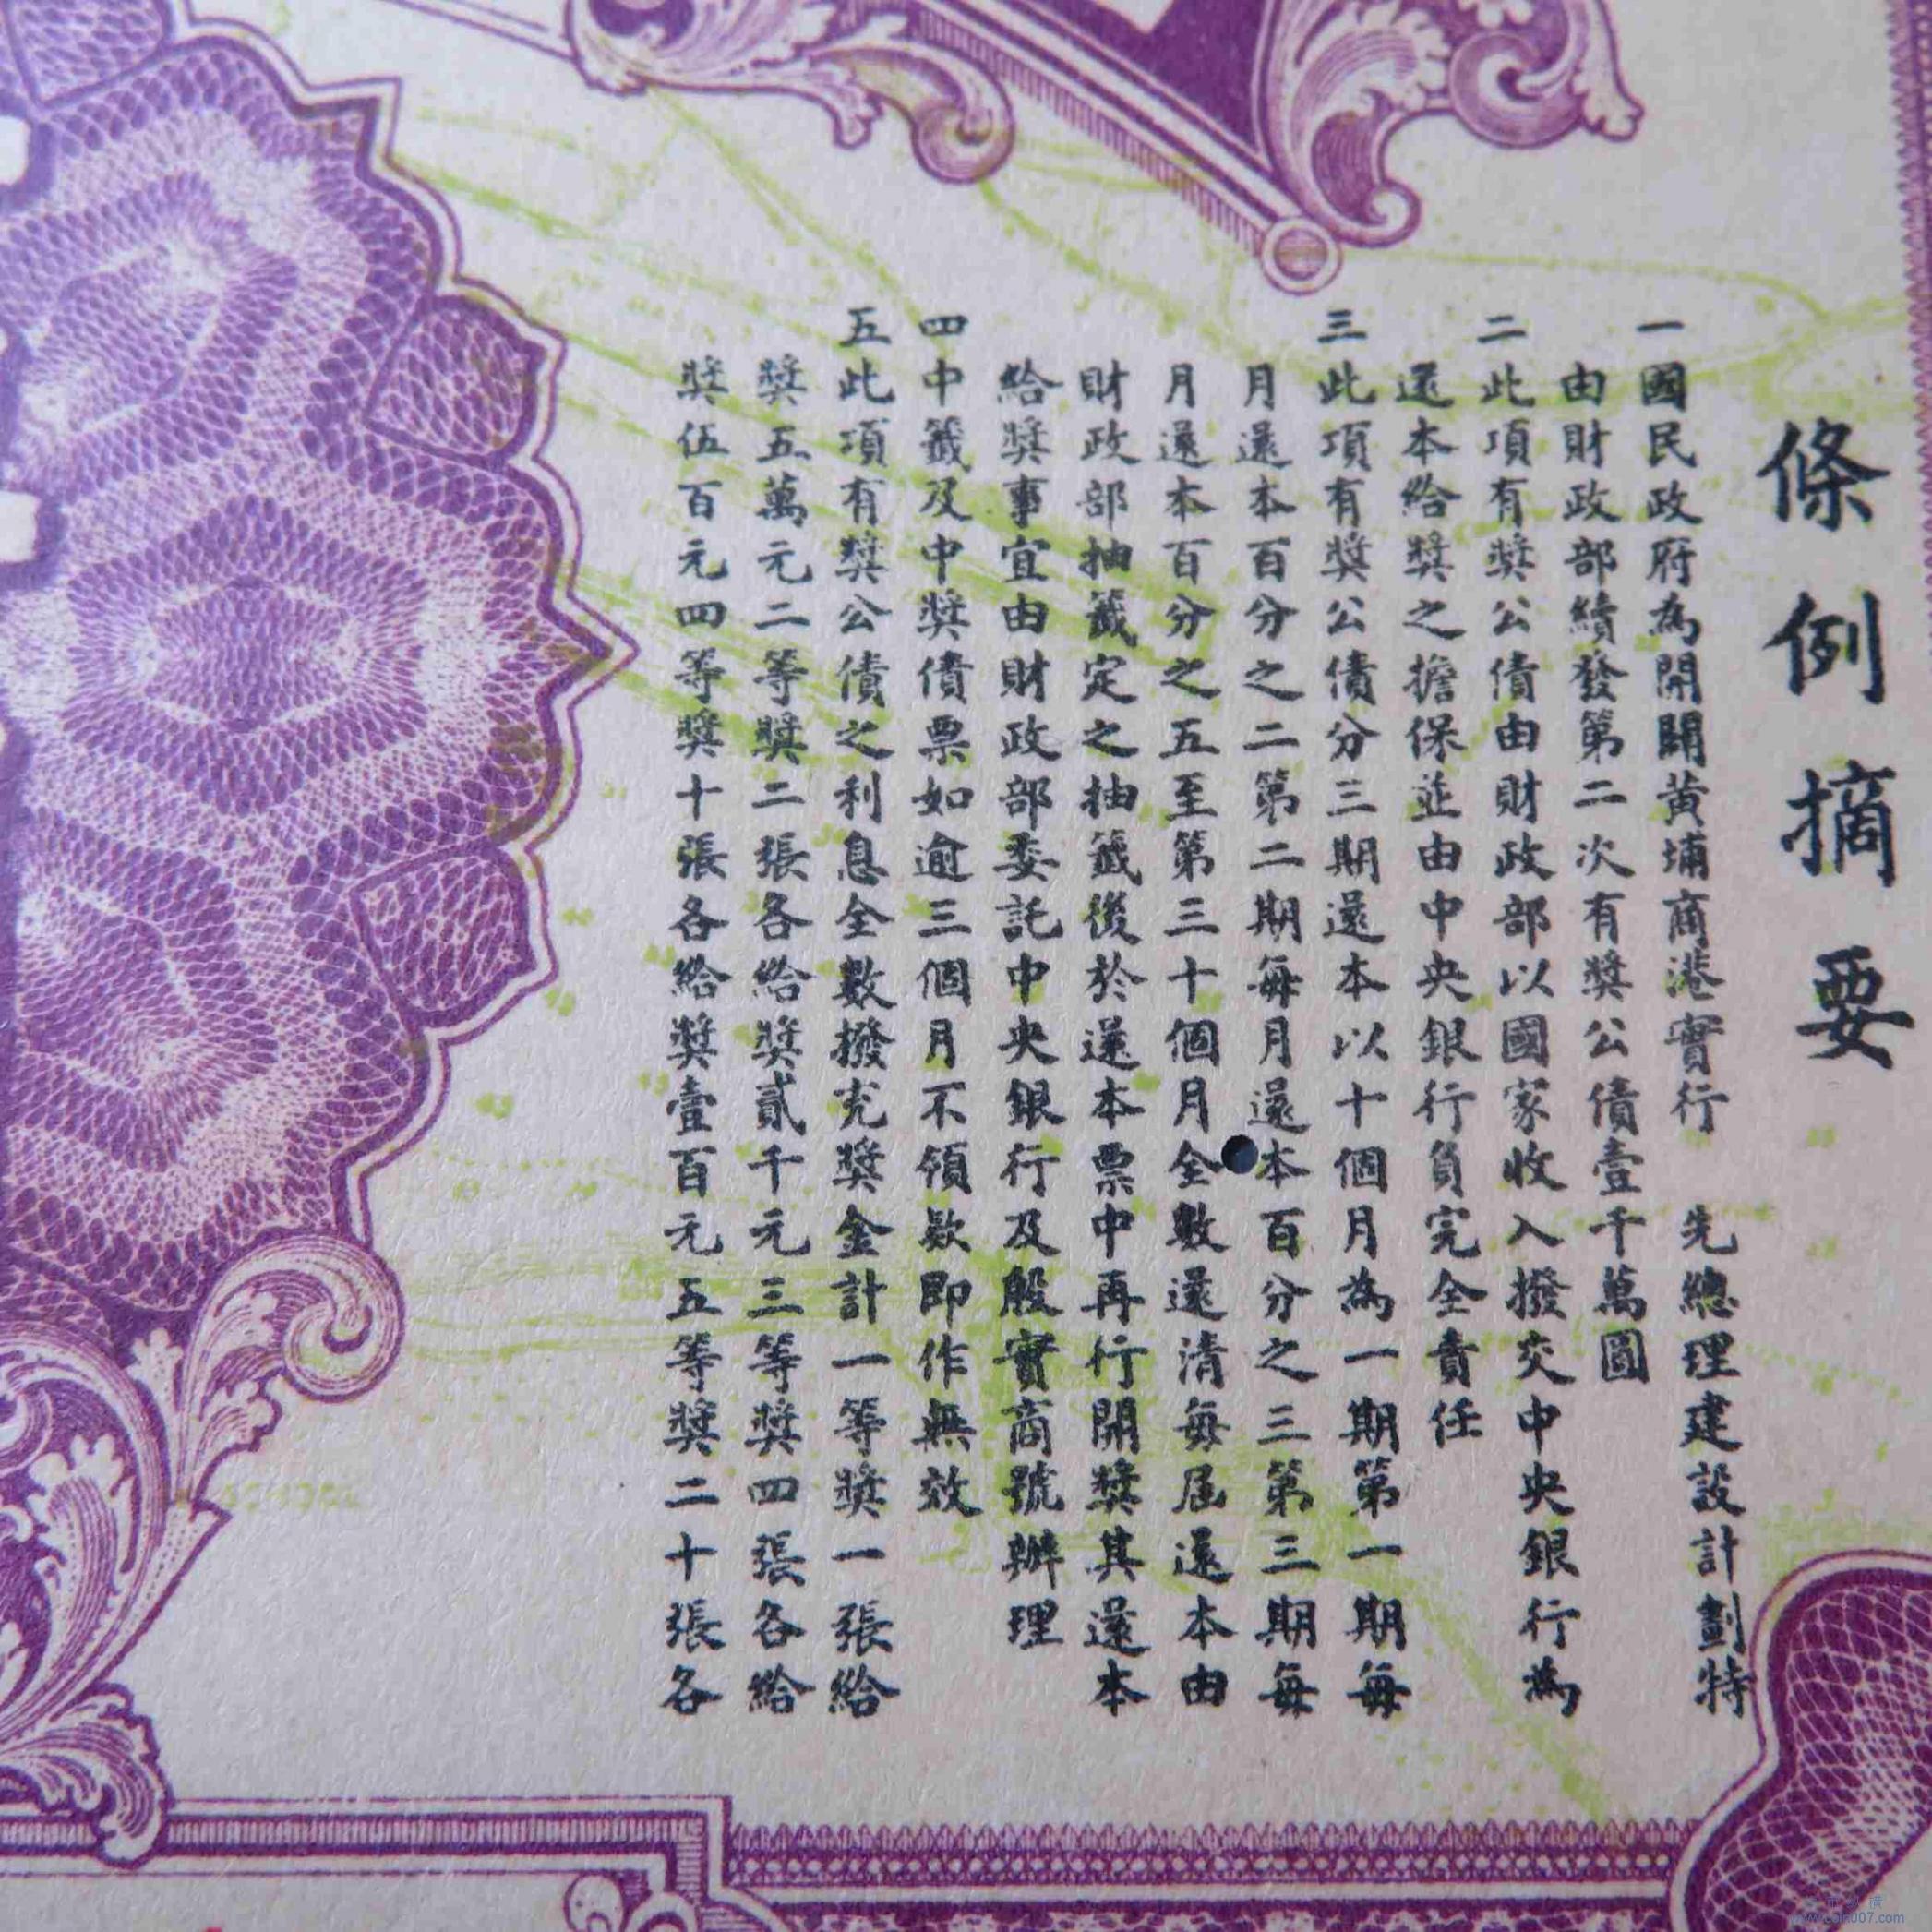 條例摘要
一國民政府為開闢黃埔商港實行　先總理建設計劃特
由財政部續發第二次有獎公債壹千萬圓
二此項有獎公債由財政部以國家收入撥交中央銀行為
還本給獎之擔保並由中央銀行負完全責任
三此項有獎公債分三期還本以十個月為一期第一期每
月還本百分之二第二期每月還本百分之三第三期每
月還本百分之五至第三十個月全數還清每屆還本由
財政部抽籤定之抽籤後於還本票中再行開獎其還本
給獎事宜由財政部委託中央銀行及殷實商號辦理
四中籤及中獎債票如逾三個月不領款即作無效
五此項有獎公債之利息全數撥充獎金計一等獎一張給
獎五萬元二等獎二張各給獎貳千元三等獎四張各給
獎伍百元四等獎十張各給獎壹百元五等獎二十張各